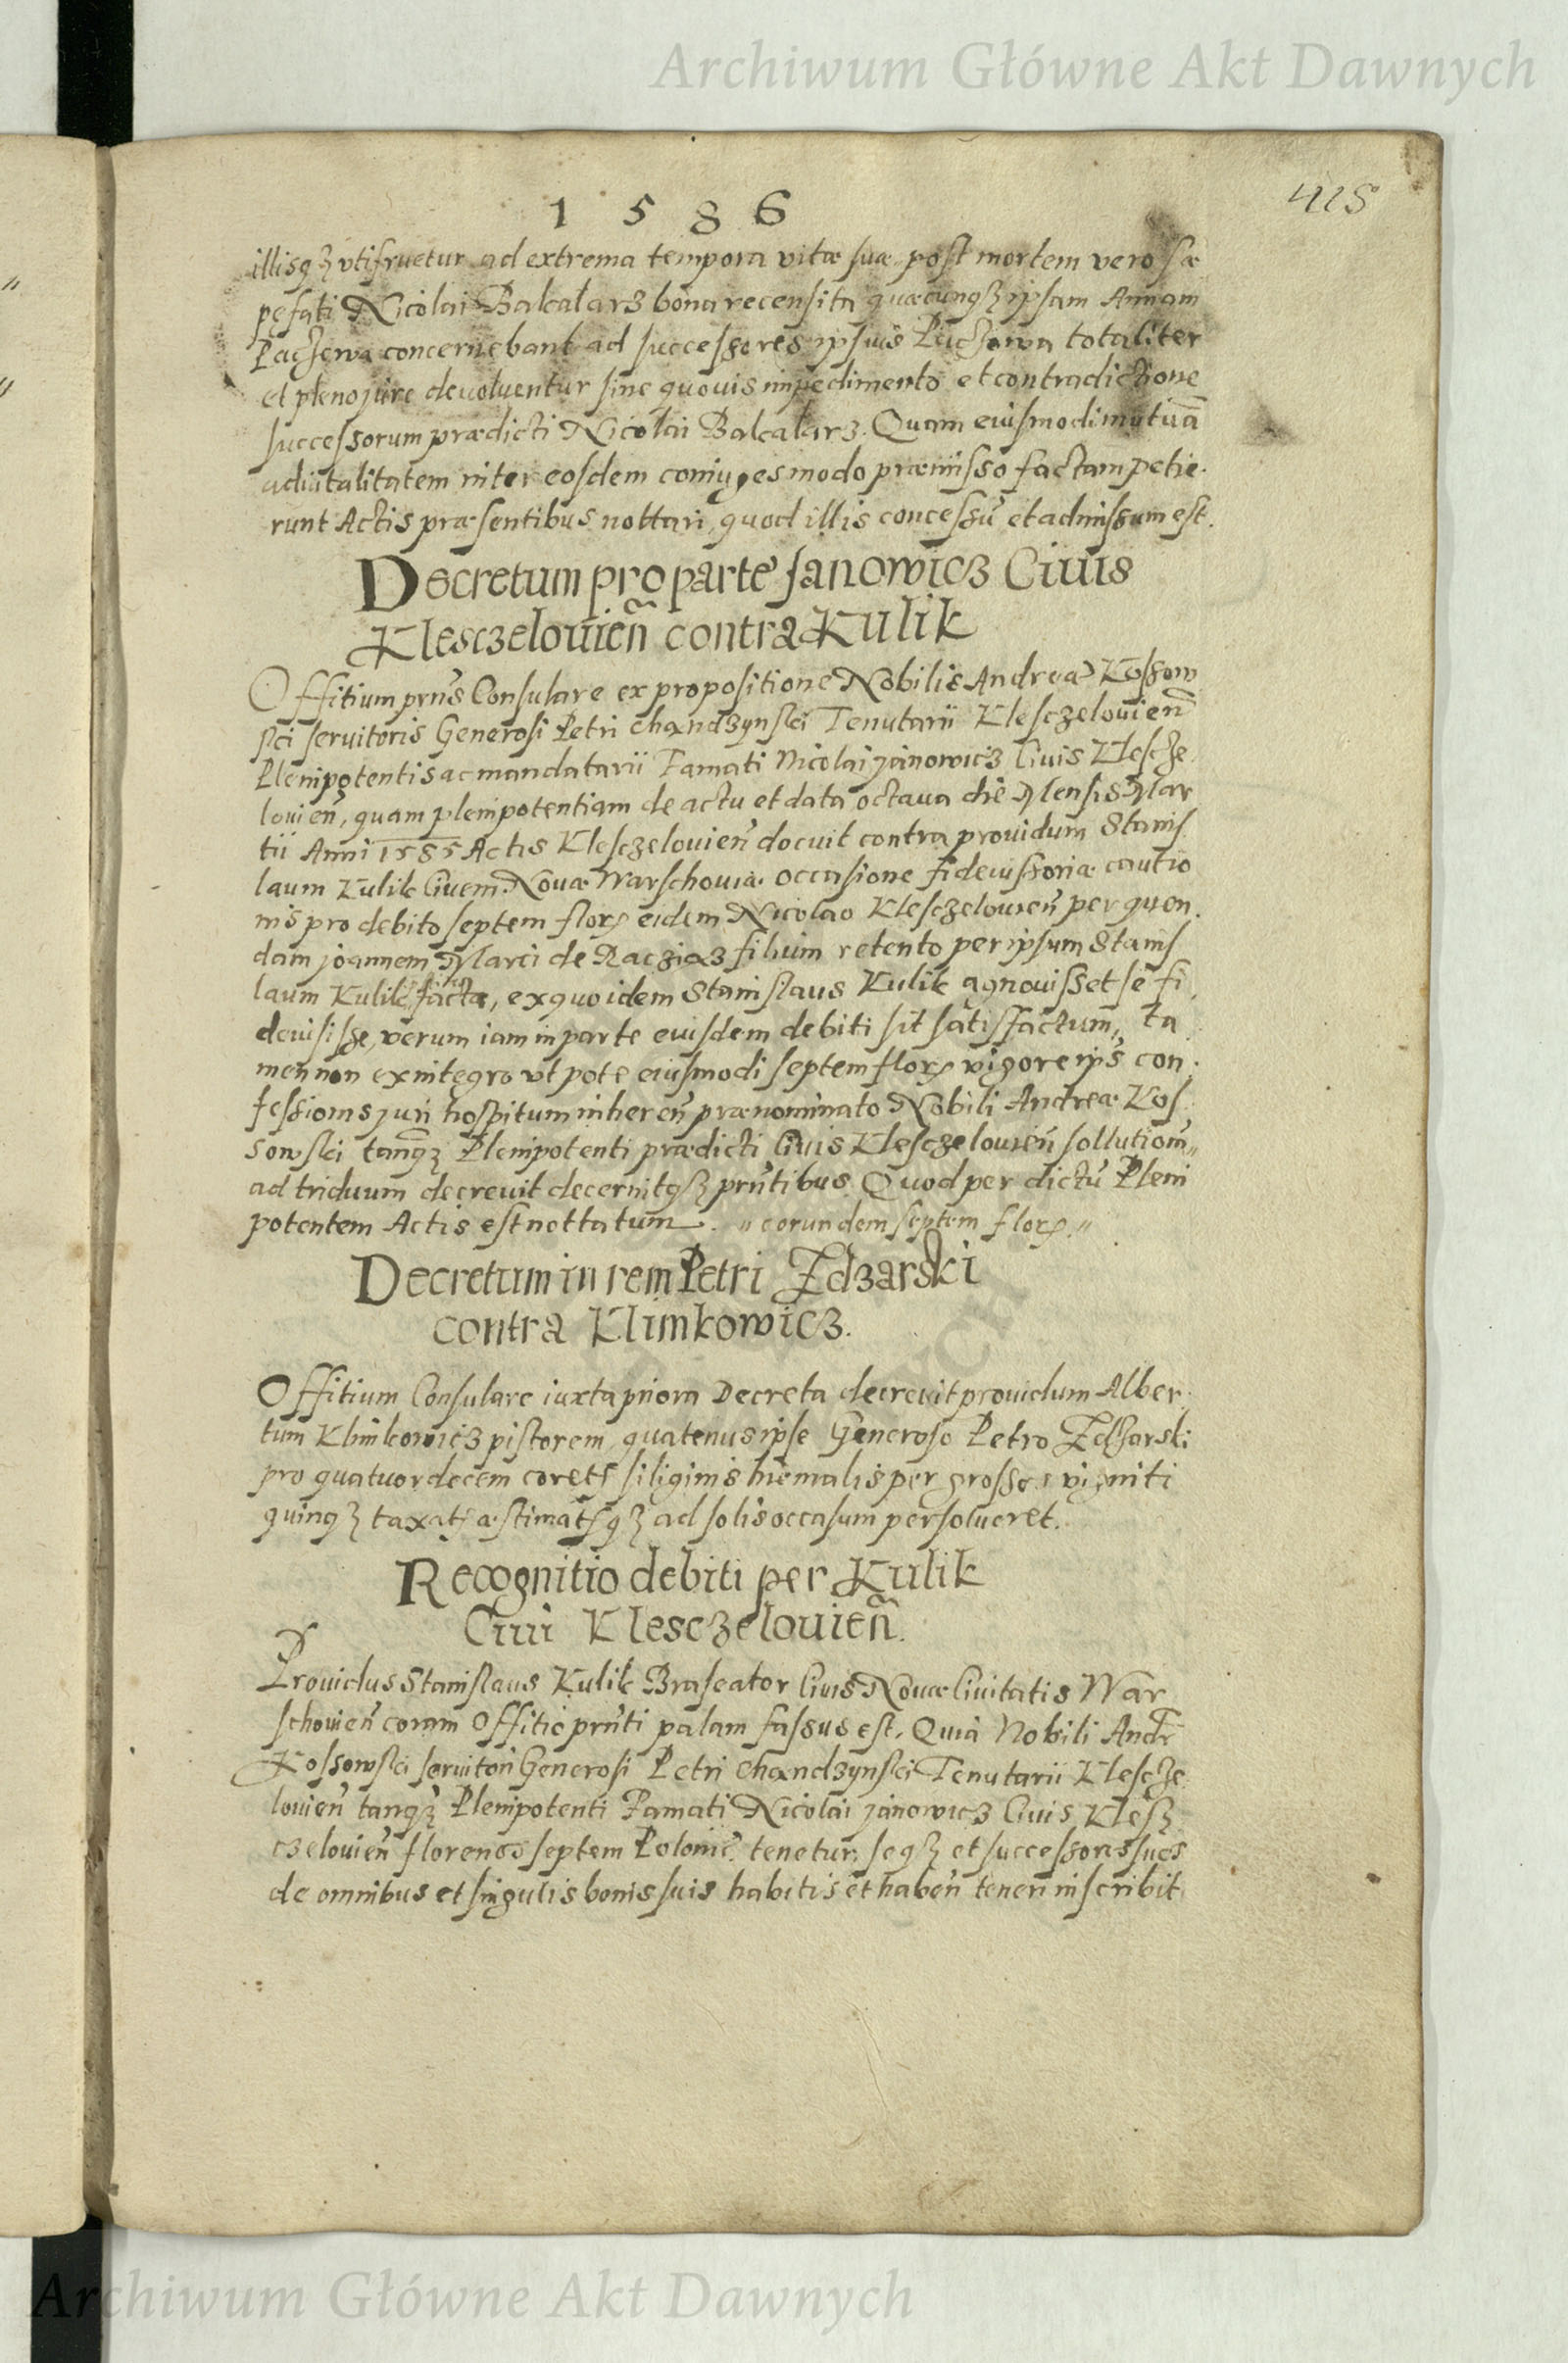 Archiwum Główne Akt Dawnych
415
1 5 8 6
illisqꝫ vtifruetur ad extrema tempora vitæ suæ post mortem vero sæ
pęfati Nicolai Bakalarz bona recensita quæcunqꝫ ipsam Annam
concernebant ad successores ipsius totaliter
et pleno jure devoluentur sine quouis impedimento et contradictione
successorum prædicti Nicolai Bakalarz. Quam eiusmodi mutuā
aduitalitatem inter eosdem coniuges modo præmisso factam petie.
runt Actis præsentibus nottari, quod illis concessū et admissum est.
Decretum pro parte Janowicz Ciuis
Klesczelouien̄ contra Kulik
Offitium prn̄s Consulare ex propositione Nobilis Andreæ Kossow
ski seruitoris Generosi Petri Chandzynski Tenutarii Klesczelouien̄
Plenipotentis ac mandatarii Famati Nicolai Janowicz Ciuis Klescze.
louien̄, quam plenipotentiam de actu et data octaua die Mensis Mar
tii Anni 1585 Actis Klesczelouien̄ docuit contra prouidum Stanis
laum Kulik Ciuem Nouæ Warschouiæ occasione fideiussoriæ cautio
nis pro debito septem florꝝ eidem Nicolao Klesczelouien̄ per quen.
dam joannem Marci de Raczias filium retento per ipsum Stanis
laum Kulik factæ, ex quo idem Stanislaus Kulik agnouisset se fi
deiusisse, verum iam in parte eiusdem debiti sit satisfactum, ta
men non ex integro vt pote eiusmodi septem florꝝ vigore ips̄ con.
fessionis juri hospitum inheren̄ prænominato Nobili Andreæ Kos
sowski tanqꝫ Plenipotenti prædicti Ciuis Klesczelouien̄ sollution̄,,
ad triduum decreuit decernitqꝫ prn̄tibus. Quod per dictū Pleni
potentem Actis est nottatum. ,, eorundem septem florꝝ. ,,
Decretum in rem Petri Zdzarski
contra Klimkowicz.
Offitium Consulare iuxta priora Decreta decreuit prouidum Alber.
tum Klimkowicz pistorem, quatenus ipse Generoso Petro Zdzarski
pro quatuordecem corets siliginis hiemalis per grossos viginti
quinqꝫ taxatꝭ æstimatꝭqꝫ ad solis occasum persolueret.
Recognitio debiti per Kulik
Ciui Klesczelouien̄.
Prouidus Stanislaus Kulik Braseator Ciuis Nouæ Ciuitatis War
schouien̄ coram Offitio prn̄ti palam fassus est. Quia Nobili Andr̄
Kossowski seruitori Generosi Petri Chandzynski Tenutarii Klescze
louien̄ tanqꝫ Plenipotenti Famati Nicolai Janowicz Ciuis Kles
czelouien̄ florenos septem Polonic̄ tenetur, seqꝫ et successores suos
de omnibus et singulis bonis suis habitis et haben̄ teneri inscribit
Archiwum Główne Akt Dawnych